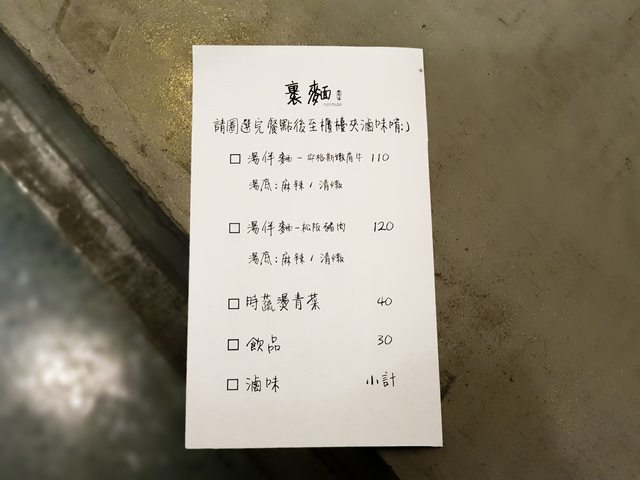 裹麵
請圈選完餐點後至櫃檯夾滷味唷:)
□ 湯伴麵-安格斯嫩肩牛 110
湯底:麻辣/清燉
□ 湯伴麵-松阪豬肉 120
湯底:麻辣/清燉
□ 時蔬燙青菜 40
□ 飲品 30
□ 滷味 小計